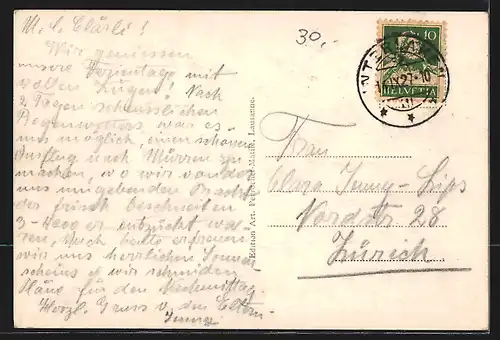 M. l. Clärli!
Wir geniessen
unsre Ferientage mit
vollen Zügen! Nach
2 Tagen scheusslichen
Regenwetters war es
uns möglich, einen schönen
Ausflug nach Mürren zu
machen, wo wir von der
uns umgebenden Pracht
der frisch beschneiten
entzückt wa-
ren. Auch heute erfreuen
wir uns herrlichen Sonnen
scheins &
für den Nachmittag
Herzl. Gruss v. den Eltern
Jenny
30.-
Edition Art. Lausanne.
10
HELVETIA
Frau
Clara Jenny-Lips
Nordstr 28
Zürich